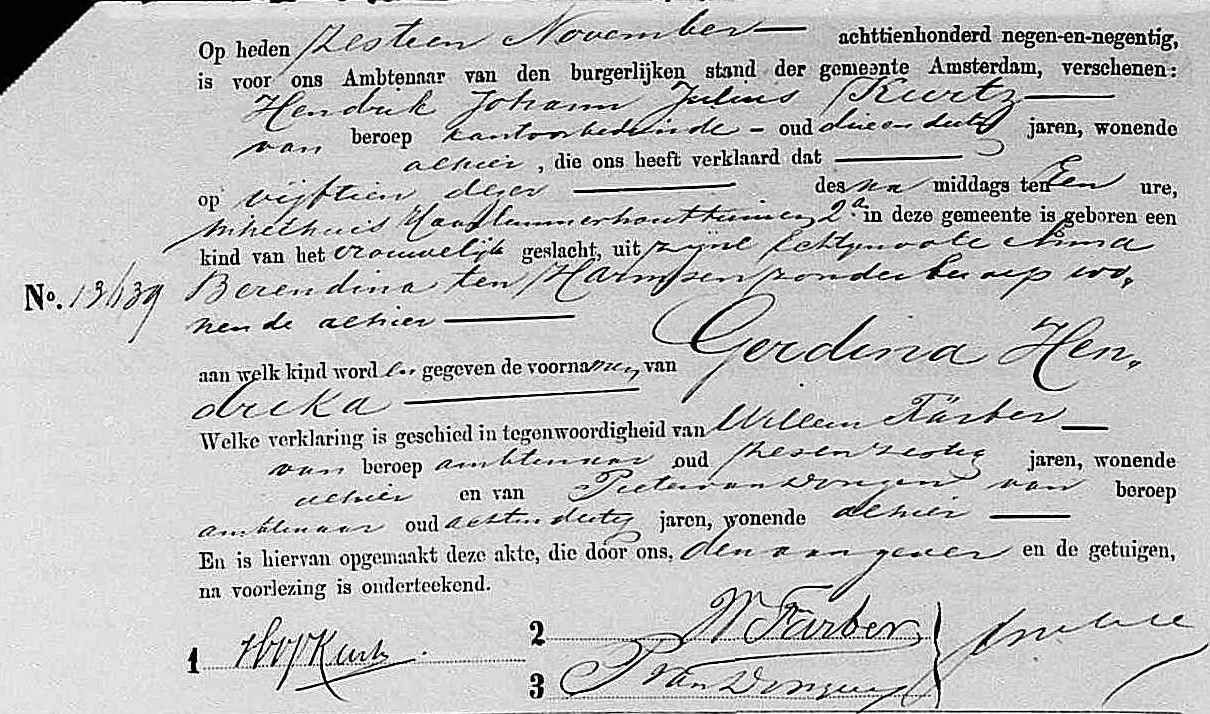 Op heden zestien November achttienhonderd negen-en-negentig,
is voor ons Ambtenaar van den burgerlijken stand der gemeente Amsterdam, verschenen:
Hendrik Johann Julius Kurtz
van beroep kantoorbediende - oud drie en dertig jaren, wonende
alhier, die ons heeft verklaard dat
op vijftien dezer des na middags ten Een ure,
in het huis Haarlemmerhouttuinen 2a in deze gemeente is geboren een
kind van het vrouwelijk geslacht, uit zijne Echtgenoote Anna
No. 13139 Berendina ten Harmsen zonder beroep wo-
nende alhier
aan welk kind worden gegeven de voornamen van Gerdina Hen-
drika
Welke verklaring is geschied in tegenwoordigheid van Willem Färber
van beroep ambtenaar oud zesenzestig jaren, wonende
alhier en van Pieter van Dongen van beroep
ambtenaar oud achtendertig jaren, wonende alhier
En is hiervan opgemaakt deze akte, die door ons, den aangever en de getuigen,
na voorlezing is onderteekend.
1 HJJKurtz.
2 W Färber
3 P van Dongen